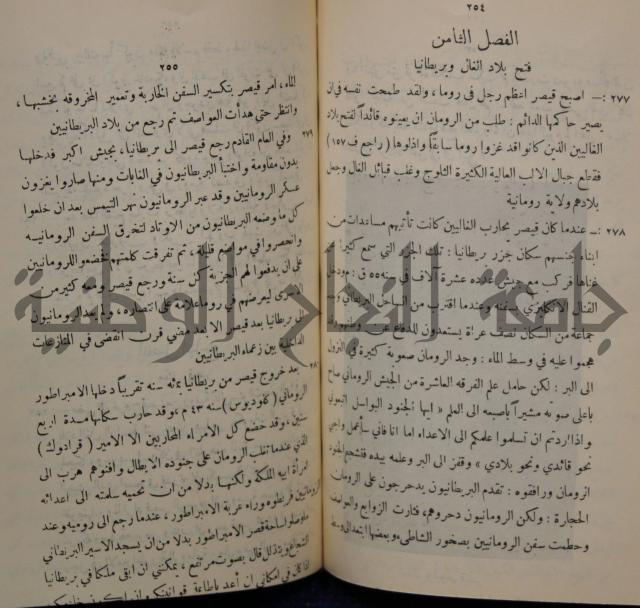 ٢٥٤
الفصل الثامن
فتح بلاد الغال وبريطانيا
٢٧٧ :— اصبح قيصر اعظم رجل في روما، ولقد طمحت نفسه في ان
يصير حاكمها الدائم : طلب من الرومان ان يعينوه قائداً لفتح بلاد
الغاليين الذين كانوا قد غزوا روما سابقاً واذلوها ( راجع ف ١٥٧ )
فقطع جبال الالب العالية الكثيرة الثلوج وغلب قبائل الغال وجعل
بلادهم ولاية رومانية
٢٧٨ :— عندما كان قيصر يحارب الغاليين كانت تأتيهم مساعدات من
ابناء جنسهم سكان جزر بريطانيا : تلك الجزر التي سمع كثيراً عن
غناها فركب مع جيش عدده عشرة آلاف في سنة ٥٥ ق : م ودخل
القنال الانكليزي وعندما اقترب من الساحل البريطاني وجد
جماعة من السكان نصف عراة يستعدون للدفاع عن
هجموا عليه في وسط الماء : وجد الرومان صعوبة كثيرة في النزول
الى البر : لكن حامل علم الفرقه العاشرة من الجيش الروماني صاح
باعلى صوته مشيراً باصبعه الى العلم « ايها الجنود البواسل اتبعوني
واذا اردتم ان تسلموا علمكم الى الاعداء اما انا فاني سأعمل واجبي
نحو قائدي ونحو بلادي » وقفز الى البر وعلمه بيده فتشجع الجنود
الرومان ورافقوه : تقدم البريطانيون يدحرجون على الرومان
الحجارة : ولكن الرومانيون دحروهم، فثارت الزوابع والعواصف
وحطمت سفن الرومانيين بصخور الشاطيء وبعضها ابتعد الى وسط
٢٥٥
الماء، امر قيصر بتكسير السفن الخاربة وتعمير المخروقه بخشبها،
وانتظر حتى هدأت العواصف ثم رجع من بلاد البريطانيين
٢٧٩ وفي العام القادم رجع قيصر الى بريطانيا، بجيش اكبر فدخلها
بدون مقاومة واختبأ البريطانيون في الغابات ومنها صاروا يغزون
عسكر الرومانيين وقد عبر الرومانيون نهر التيمس بعد ان خلعوا
كل ما وضعه البريطانيون من الاوتاد لتخرق السفن الرومانيه
وانحصروا في مواضع قليلة، ثم تفرقت كلمتهم فخضعوا للرومانيين
على ان يدفعوا لهم الجزية كل سنة ورجع قيصر ومعه كثير من
الاسرى ليعرضهم في روما علامة على انتصاره، ولم يعد الرومانيون
الى بريطانيا بعد قيصر الا بعد مضي قرن انقضى في المنازعات
الداخلية بين زعماء البريطانيين
٢٨٠ بعد خروج قيصر من بريطانيا بمئة سنه تقريباً دخلها الامبراطور
الروماني ( كلوديوس ) سنه ٤٣ م، وقد حارب سكانها مدة اربع
سنين، وقد خضع كل الامراء المحاربين الا الامير ( قرادوك )
الذي عندما تغلب الرومان على جنوده الابطال وافنوهم هرب الى
امرأة ابيه الملكة ولكنها بدلا من ان تحميه سلمته الى اعدائه
الرومانيين فربطوه وراء عربة الامبراطور، عندما رجع الى روميه وعند
ما وصلوا ساحة قصر الامبراطور بدلا من ان يسجد الاسير البريطاني
الشجاع قال بصوت مرتفع، يمكنني ان ابقى ملكا في بريطانيا
كان في امكاني ان أعد
جامعة النجاح الوطنية